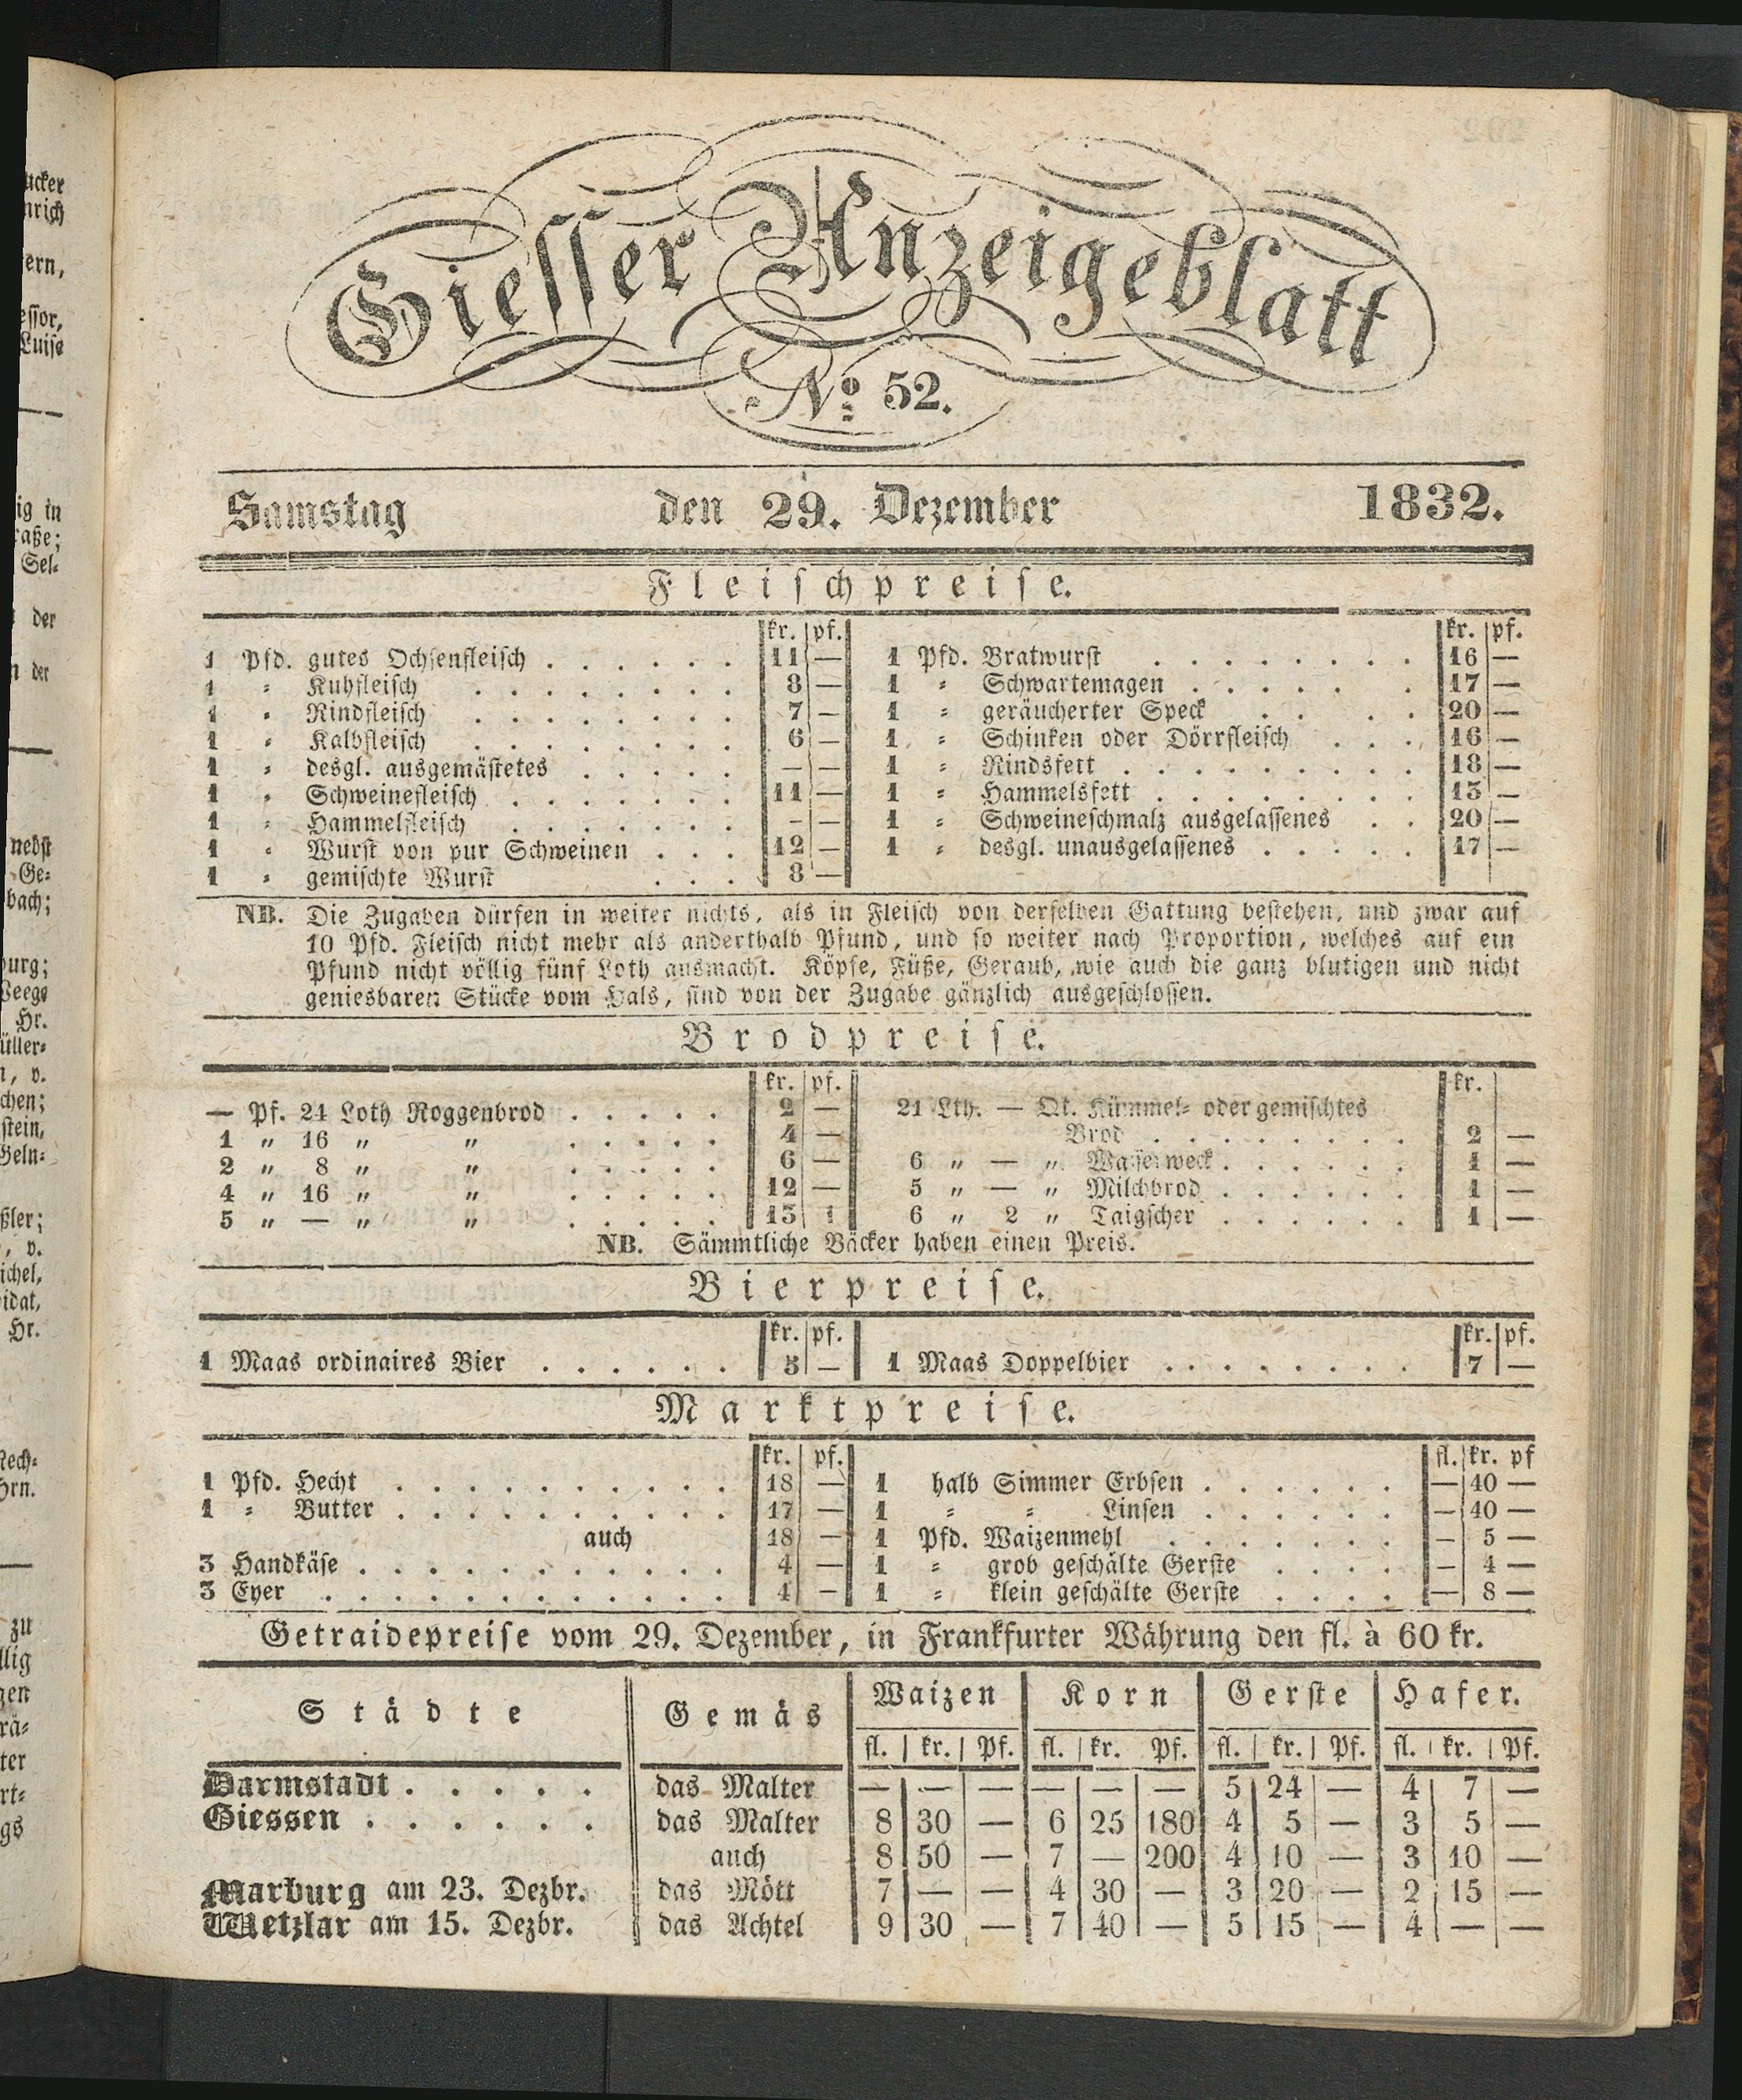 Giesser Anzeigeblatt
No. 52.
Samstag den 29. Dezember 1832.
Fleischpreise.
kr. pf.
1 Pfd. gutes Ochsenfleisch . . . . . . 11 —
1 = Kuhfleisch . . . . . . . . 8 —
1 = Rindfleisch . . . . . . . . 7 —
1 = Kalbfleisch . . . . . . . . 6 —
1 = desgl. ausgemästetes . . . . . — —
1 = Schweinefleisch . . . . . . . 11 —
1 = Hammelfleisch . . . . . . . — —
1 = Wurst von pur Schweinen . . . 12 —
1 = gemischte Wurst . . . 8 —
kr. pf.
1 Pfd. Bratwurst . . . . . . . . 16 —
1 = Schwartemagen . . . . . . 17 —
1 = geräucherter Speck . . . . 20 —
1 = Schinken oder Dörrfleisch . . . 16 —
1 = Rindsfett . . . . . . . . . 18 —
1 = Hammelsfett . . . . . . . . 13 —
1 = Schweineschmalz ausgelassenes . . 20 —
1 = desgl. unausgelassenes . . . . . 17 —
NB. Die Zugaben dürfen in weiter nichts, als in Fleisch von derselben Gattung bestehen, und zwar auf
10 Pfd. Fleisch nicht mehr als anderthalb Pfund, und so weiter nach Proportion, welches auf ein
Pfund nicht völlig fünf Loth ausmacht. Köpfe, Füße, Geraub, wie auch die ganz blutigen und nicht
geniesbaren Stücke vom Hals, sind von der Zugabe gänzlich ausgeschlossen.
Brodpreise.
kr. pf.
— Pf. 24 Loth Roggenbrod . . . . . 2 —
1 " 16 " " . . . . . 4 —
2 " 8 " " . . . . . 6 —
4 " 16 " " . . . . . 12 —
5 " — " " . . . . . 13 1
kr.
21 Lth. — Qt. Kümmel= oder gemischtes
Brod . . . . . . . . 2 —
6 " — " Wasserweck . . . . . . 1 —
5 " — " Milchbrod . . . . . . 1 —
6 " 2 " Taigscher . . . . . . 1 —
NB. Sämmtliche Bäcker haben einen Preis.
Bierpreise.
kr. pf. kr. pf.
1 Maas ordinaires Bier . . . . . . 5 — 1 Maas Doppelbier . . . . . . . . 7 —
Marktpreise.
kr. pf.
1 Pfd. Hecht . . . . . . . . . . 18 —
1 = Butter . . . . . . . . . . 17 —
auch 18 —
3 Handkäse . . . . . . . . . . . 4 —
3 Eyer . . . . . . . . . . . . 4 —
fl. kr. pf
1 halb Simmer Erbsen . . . . . . — 40 —
1 = = Linsen . . . . . . — 40 —
1 Pfd. Waizenmehl . . . . . . . — 5 —
1 = grob geschälte Gerste . . . . — 4 —
1 = klein geschälte Gerste . . . . — 8 —
Getraidepreise vom 29. Dezember, in Frankfurter Währung den fl. à 60 kr.
Städte Gemäs Waizen Korn Gerste Hafer.
fl. kr. Pf. fl. kr. Pf. fl. kr. Pf. fl. kr. Pf.
Darmstadt . . . . . das Malter — — — — — — 5 24 — 4 7 —
Giessen . . . . . . das Malter 8 30 — 6 25 180 4 5 — 3 5 —
auch 8 50 — 7 — 200 4 10 — 3 10 —
Marburg am 23. Dezbr. das Mött 7 — — 4 30 — 3 20 — 2 15 —
Wetzlar am 15. Dezbr. das Achtel 9 30 — 7 40 — 5 15 — 4 — —